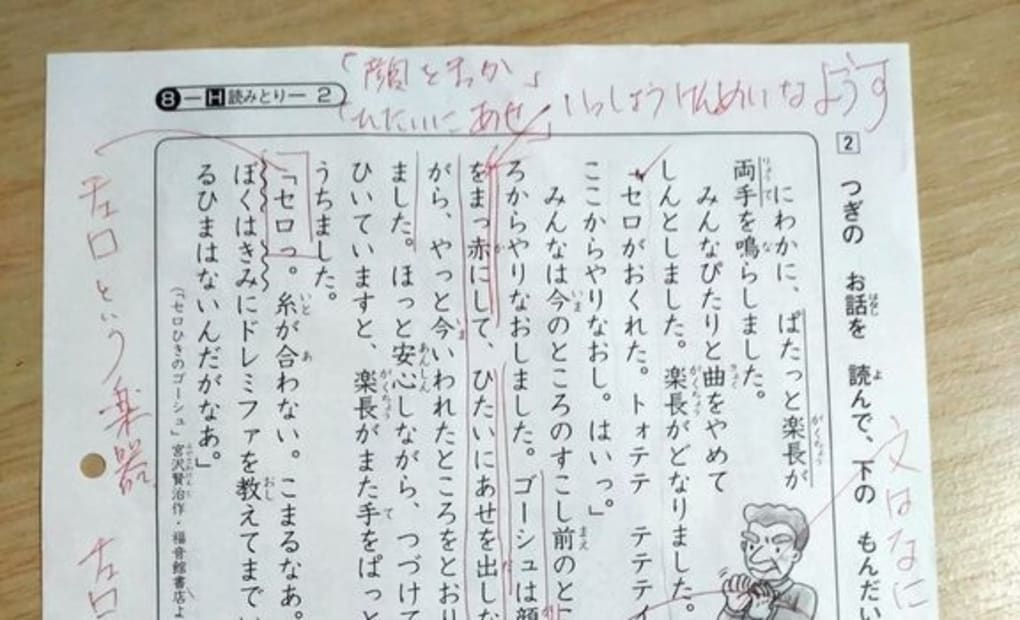 8－H読みとり－2
「顔をまっか」
「ひたいにあせ」 いっしょうけんめいなようす
2 つぎの お話を 読んで、下の もんだい
にわかに、ぱたっと楽長が
両手を鳴らしました。
みんなぴたりと曲をやめて
しんとしました。楽長がどなりました。
「セロがおくれた。トォテテ テテテイ
ここからやりなおし。はいっ。」
みんなは今のところのすこし前のとこ
ろからやりなおしました。ゴーシュは顔
をまっ赤にして、ひたいにあせを出しな
がら、やっと今いわれたところをとおり
ました。ほっと安心しながら、つづけて
ひいていますと、楽長がまた手をぱっと
うちました。
「セロっ。糸が合わない。こまるなあ。
ぼくはきみにドレミファを教えてまで
るひまはないんだがなあ。」
（「セロひきのゴーシュ」宮沢賢治作・福音館書店よ
文はなに
チェロという楽器